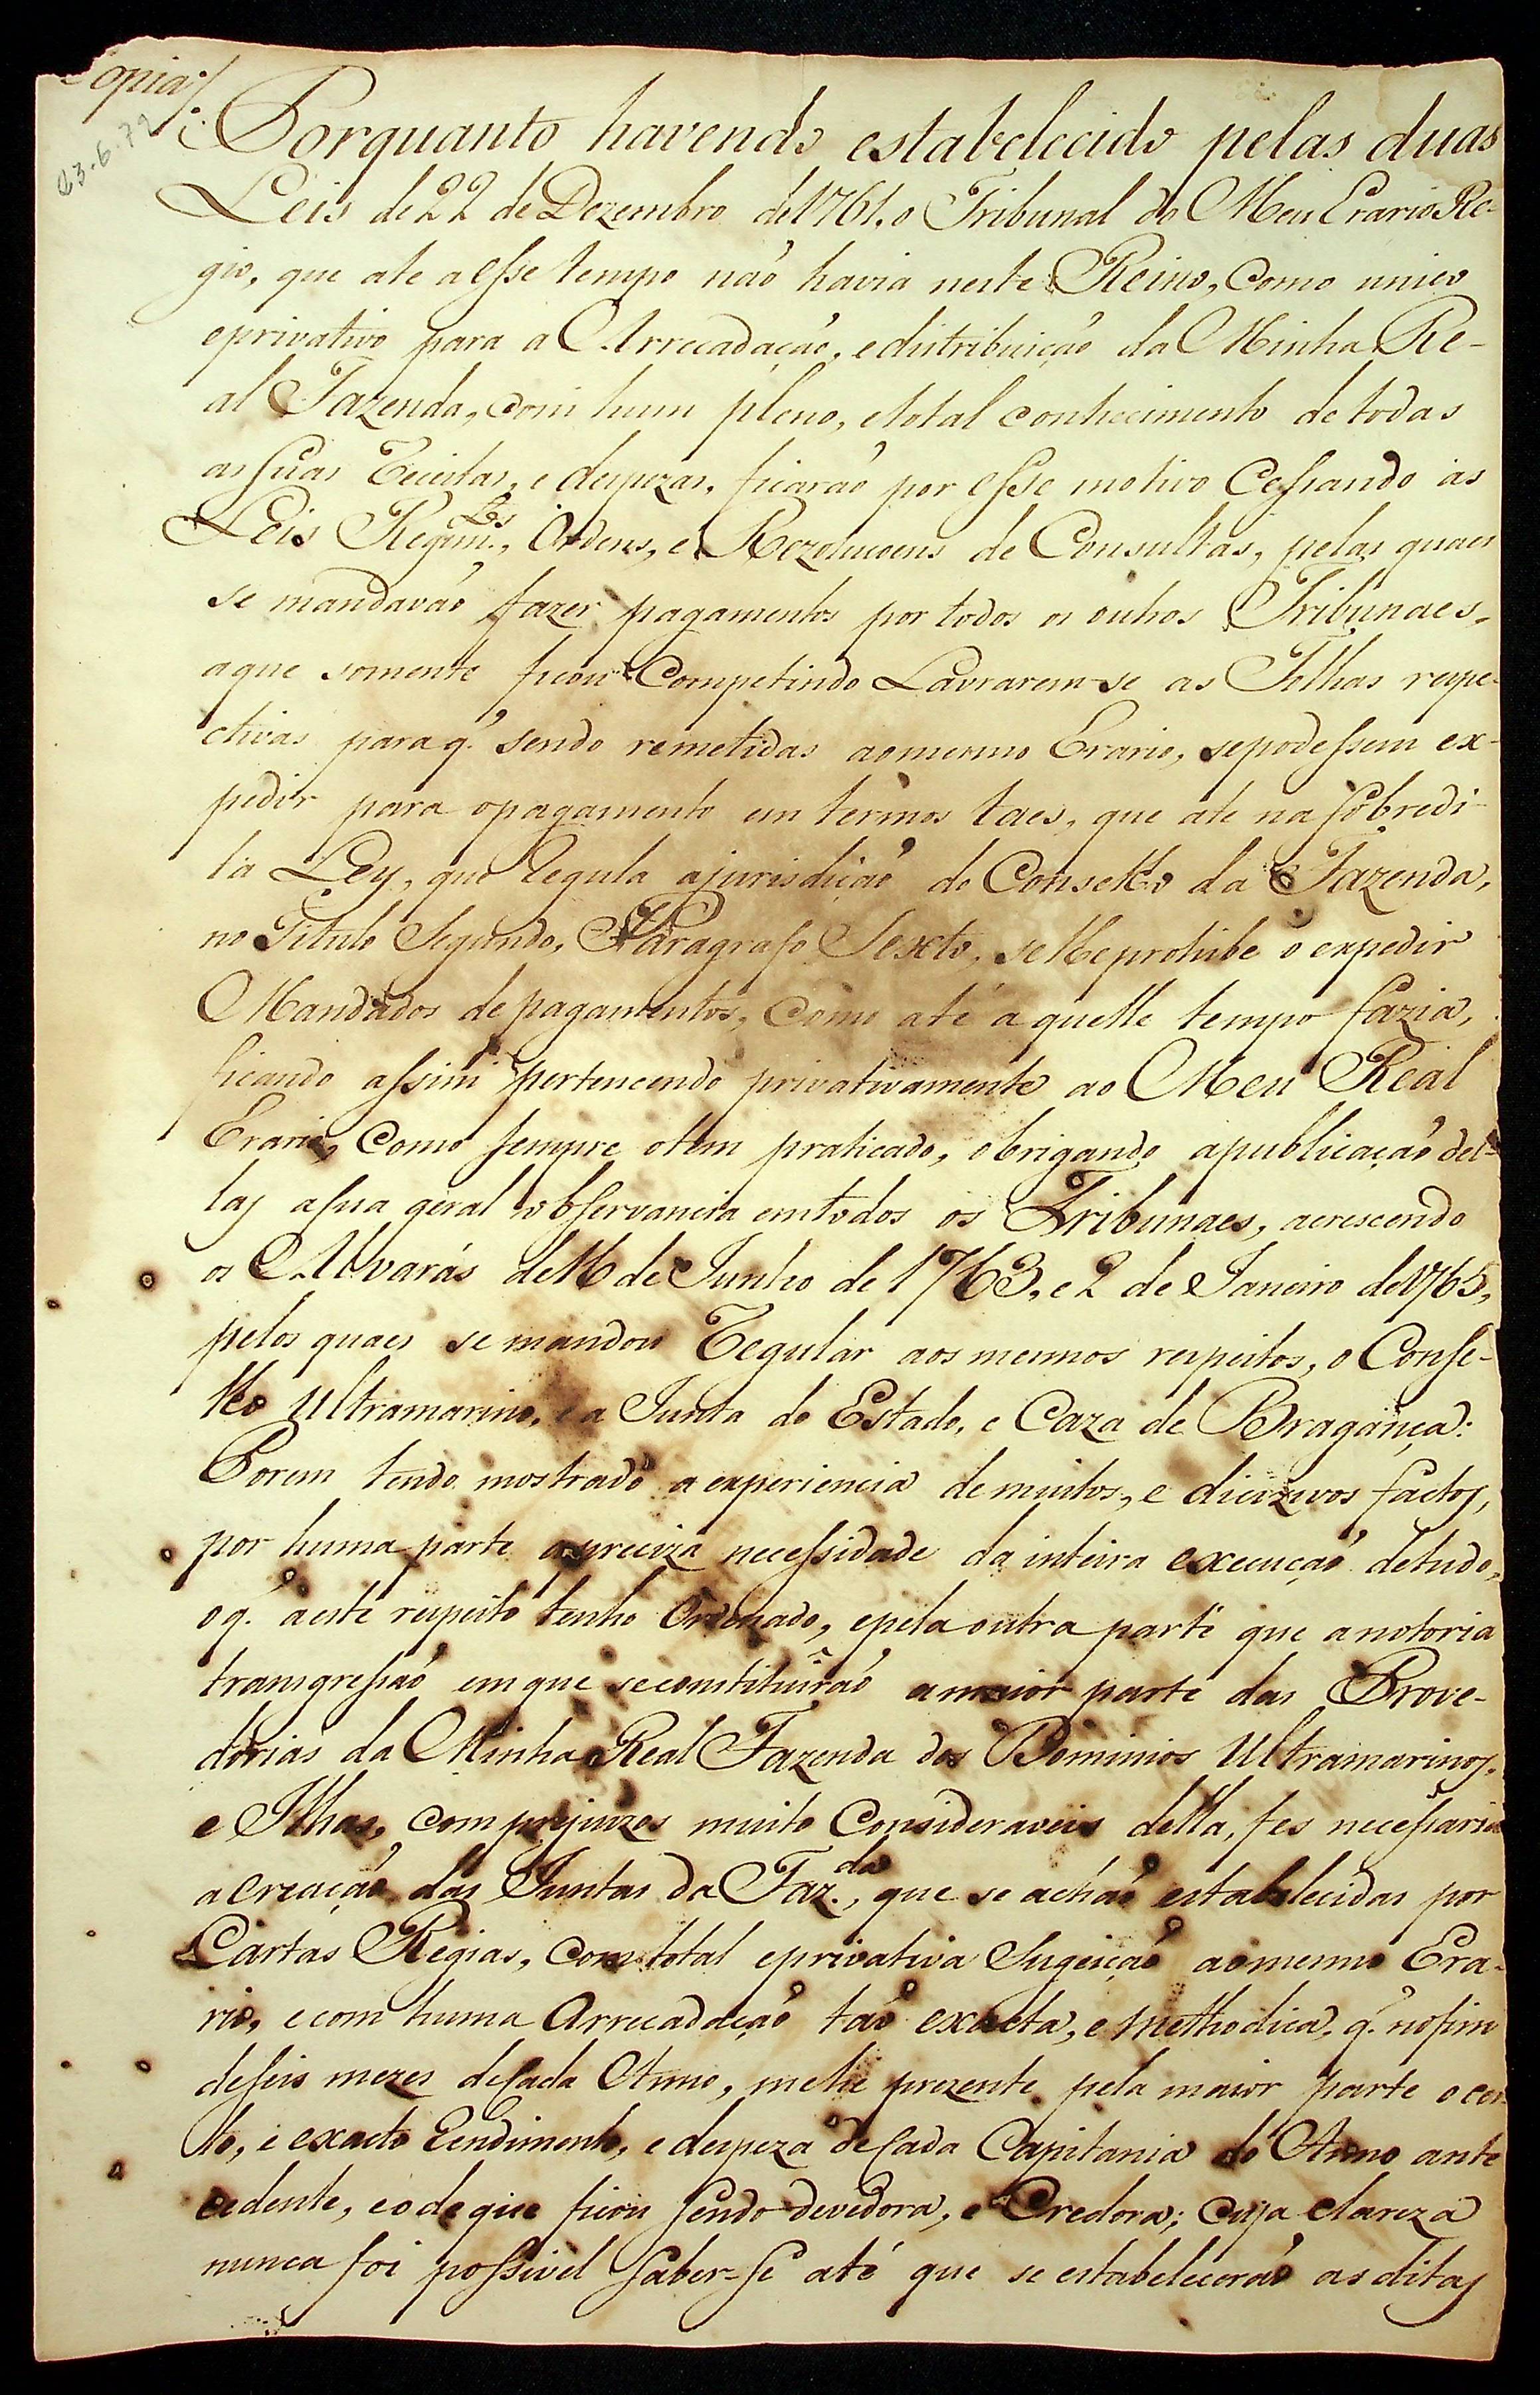 opia/.
23-6-79
Porquanto havendo estabelecido pelas duas
Leis de 22 de Dezembro de 1761. o Tribunal do Meu Erario Re-
gio, que ate a esse tempo naõ havia neste Reino, como unico
eprivativo para a Arrecadaçaõ, edistribuiçaõ da Minha Re-
al Fazenda, com hum pleno, etotal conhecimento de todas
as suas Receitas, e despezas, ficaraõ por esse motivo Cessando as
Leis Regim.tos, Ordens, e Rezolucoens de Consultas, pelas quaes
se mandavaõ fazer pagamentos por todos os outros Tribunaes,
aque somente ficou Competindo Lavrarem-se as Folhas respe-
ctivas para q.' sendo remetidas aomesmo Erario, sepodessem ex-
pedir para opagamento em termos taes, que ate na sobredi-
ta Ley, que Regula ajurisdiçaõ do Conselho da Fazenda,
no Titulo Segundo, Paragrafo Sexto, selhe prohibe o expedir
Mandados de pagamentos, como até aquelle tempo fazia,
ficando assim pertencendo privativamente ao Meu Real
Erario, Como sempre otem praticado, obrigando apublicaçaõ del-
las asua geral observancia emtodos os Tribunaes, acrescendo
os Alvarás de 16 de Junho de 1763, e 2 de Janeiro de 1765,
pelos quaes se mandou Regular aos mesmos respeitos, o Conse-
lho Ultramarino, e a Junta do Estado, e Caza de Bragança:
Porem tendo mostrado a experiencia de muitos, e diverzos factos,
por huma parte apreciza necessidade da inteira execuçaõ detudo,
oq.' aeste respeito tenho Ordenado, epela outra parte que a notoria
transgressaõ emque seconstituiraõ amaior parte das Prove-
dorias da Minha Real Fazenda dos Dominios Ultramarinos,
e Ilhas, com prejuizos muito Consideraveis della, fes necessaria
a creaçaõ das Juntas da Faz.da, que se achaõ estabelecidas por
Cartas Regias, com total eprivativa Sugeiçaõ aomesmo Era-
rio, e com huma Arrecadaçaõ taõ exacta, e methodica, q.' nofim
deseis mezes decada Anno, mehe prezente pela maior parte o cer-
to, e exacto Rendimento, e despeza decada Capitania do Anno ante
cedente, eodeque ficou sendo devedora, e Credora; cuja clareza
nunca foi possivel saber-se até que se estabeleceraõ as ditas